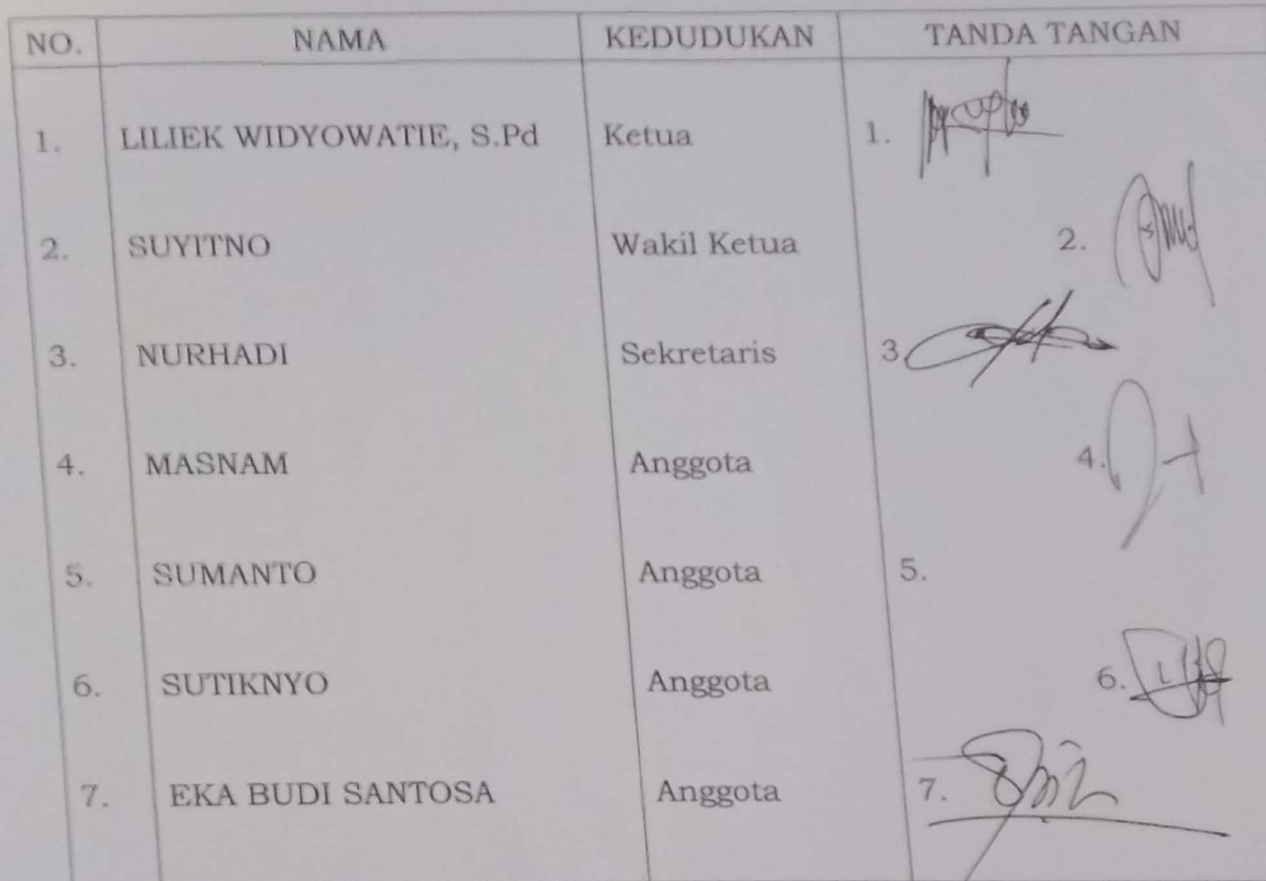 NO. NAMA KEDUDUKAN TANDA TANGAN
1. LILIEK WIDYOWATIE, S.Pd Ketua 1.
2. SUYITNO Wakil Ketua 2.
3. NURHADI Sekretaris 3
4. MASNAM Anggota 4.
5. SUMANTO Anggota 5.
6. SUTIKNYO Anggota 6.
7. EKA BUDI SANTOSA Anggota 7.